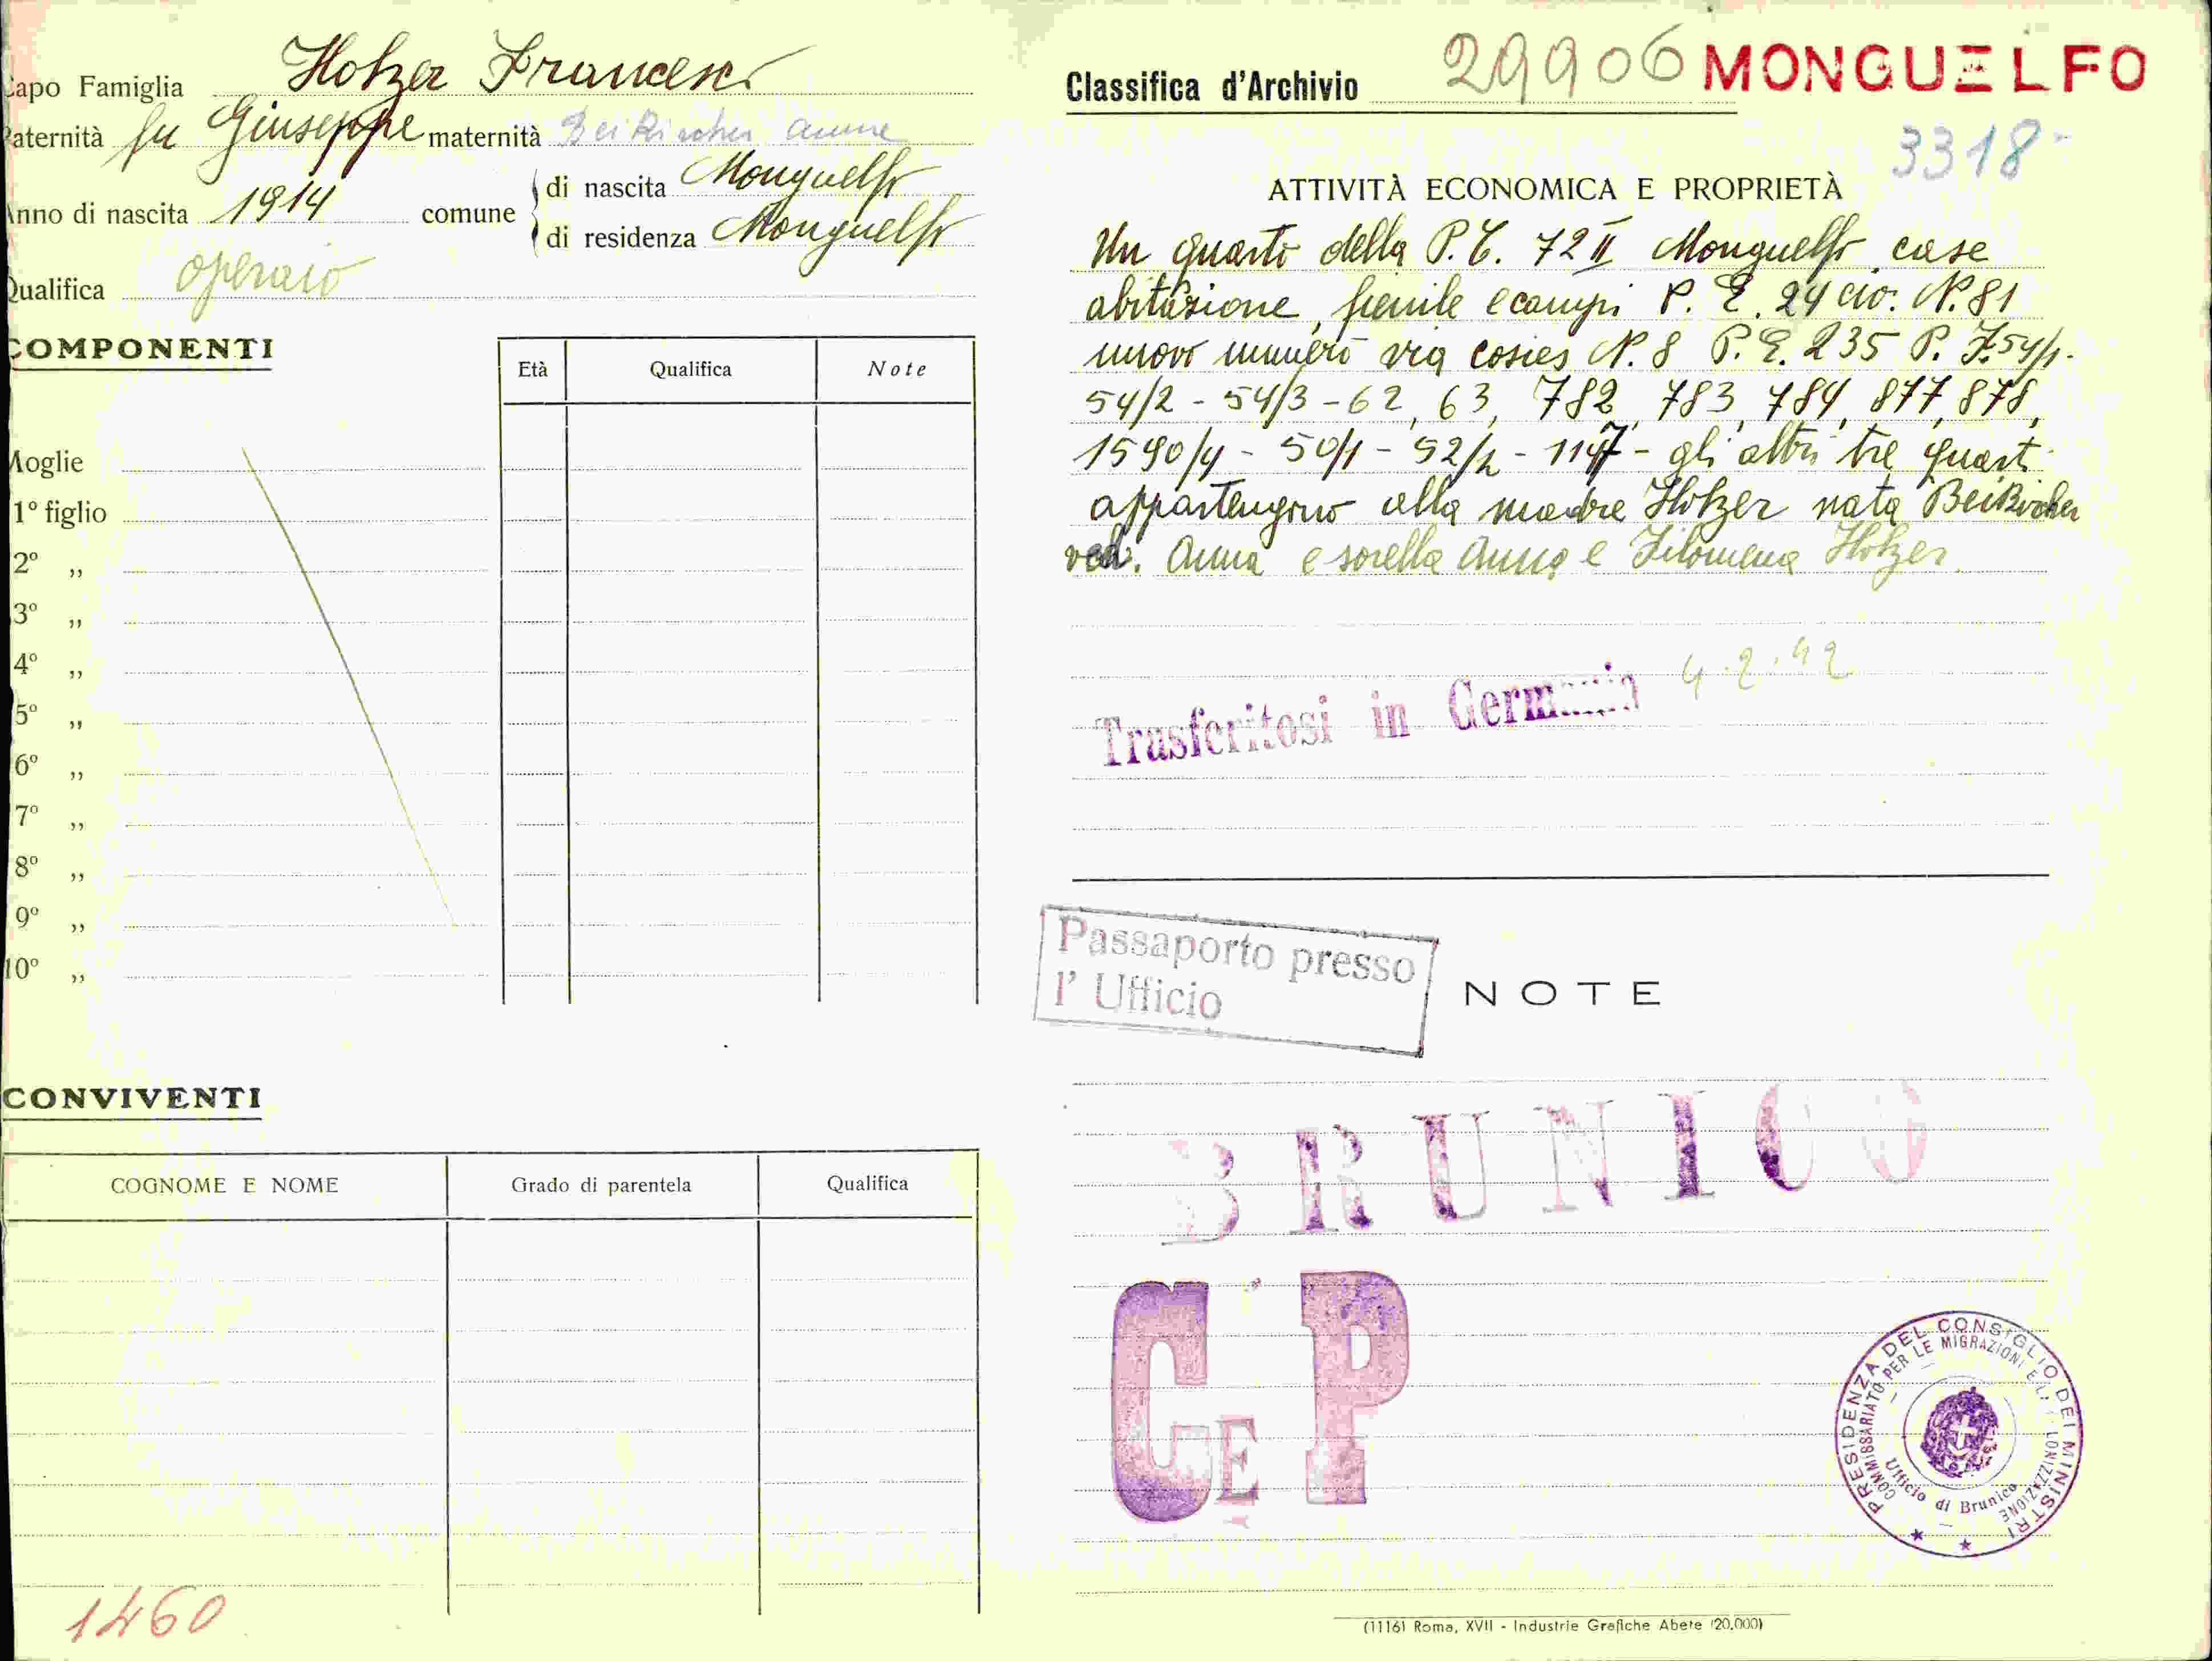 Capo Famiglia Hofzer Francesco
Paternità fu Giuseppe maternità Beikircher Anna
Anno di nascita 1914 comune di nascita Monguelfo
di residenza Monguelfo
Qualifica operaio
COMPONENTI
Età Qualifica Note
Moglie
1º figlio
2º „
3º „
4º „
5º „
6º „
7º „
8º „
9º „
10º „
CONVIVENTI
COGNOME E NOME Grado di parentela Qualifica
1460
Classifica d'Archivio 29906 MONGUELFO
3318
ATTIVITÀ ECONOMICA E PROPRIETÀ
Un quarto della P.T. 72 II Monguelfo case
abitazione, fienile e campi P. E. 24 civ. N. 81
nuovo numero via N. 8 P. E. 235 P. F. 54/1-
54/2 - 54/3 - 62, 63, 782, 783, 784, 877, 878,
1590/4 - 50/1 - 52/2 - 1147 - gli altri tre quarti
appartengono alla madre Hofzer nata Beikircher
ved. Anna e sorella Anna e Filomena Hofzer.
Trasferitosi in Germania 4.2.42
Passaporto presso
l' Ufficio
NOTE
BRUNICO
C E P
PRESIDENZA DEL CONSIGLIO DEI MINISTRI
COMMISSARIATO PER LE MIGRAZIONI E LA COLONIZZAZIONE
Ufficio di Brunico
(1116) Roma, XVII - Industrie Grafiche Abete (20.000)